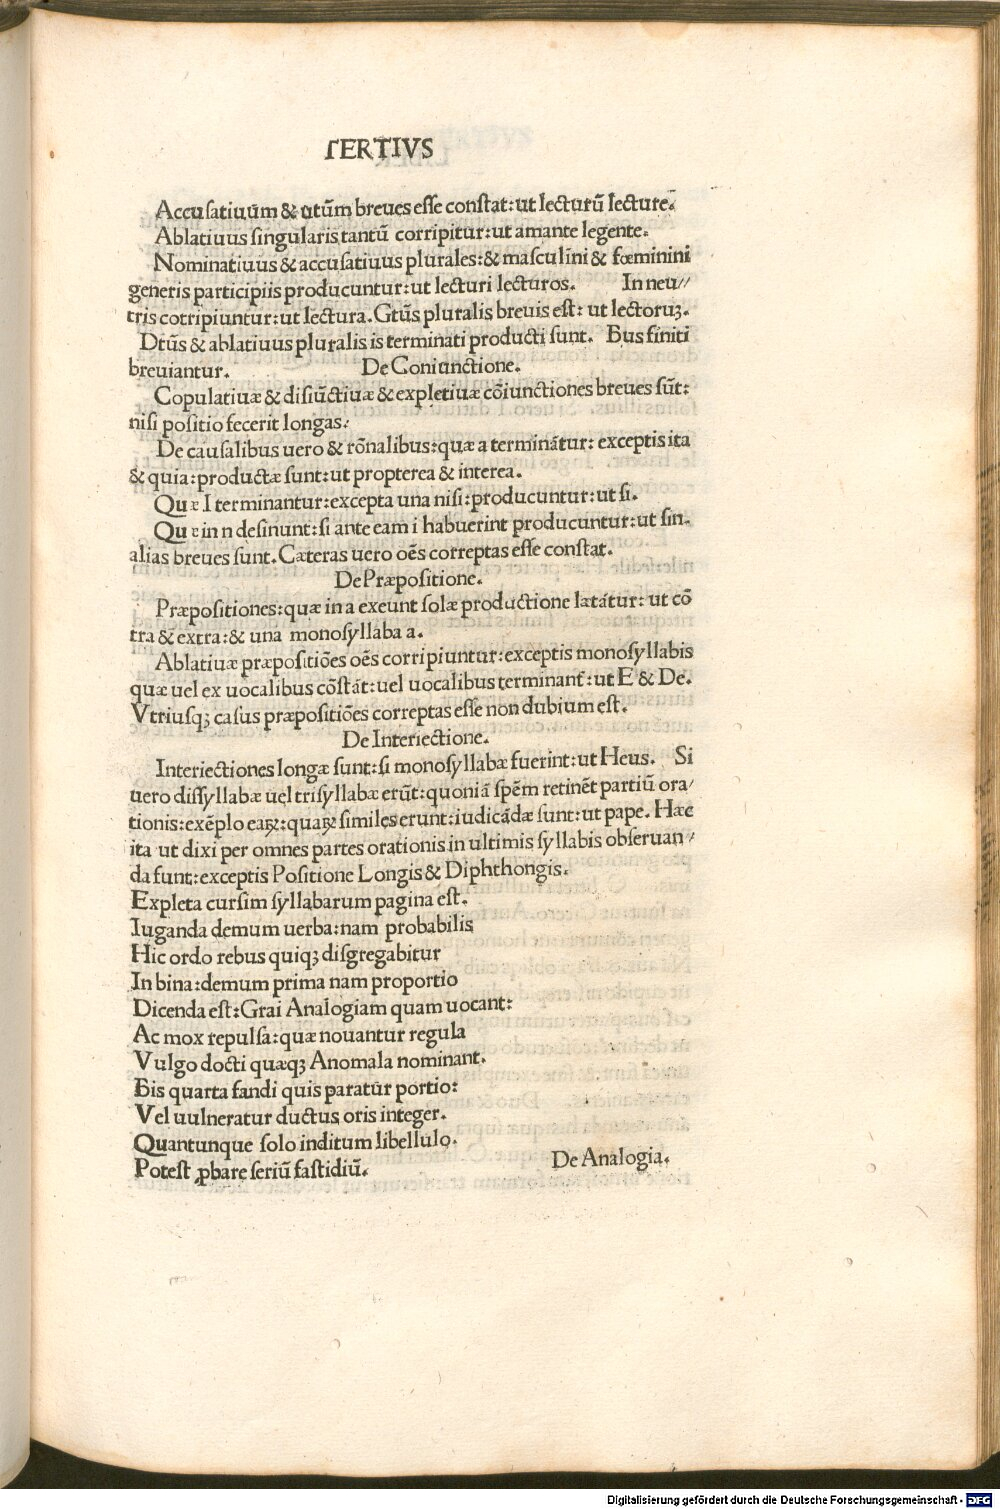 TERTIVS
Accusatiuũm & utũm breues esse constat: ut lecturũ lecture.
Ablatiuus singularis tantũ corripitur: ut amante legente.
Nominatiuus & accusatiuus plurales: & masculini & fœminini
generis participiis producuntur: ut lecturi lecturos. In neu//
tris cotripiuntur: ut lectura. Gtũs pluralis breuis est: ut lectoruꝫ.
Dtũs & ablatiuus pluralis is terminati producti sunt. Bus finiti
breuiantur. De Coniunctione.
Copulatiuæ & disiũctiuæ & expletiuæ cõiunctiones breues sũt:
nisi positio fecerit longas:
De causalibus uero & rõnalibus: quæ a terminãtur: exceptis ita
& quia: productæ sunt: ut propterea & interea.
Quæ I terminantur: excepta una nisi: producuntur: ut si.
Quæ in n desinunt: si ante eam i habuerint producuntur: ut sin.
alias breues sunt. Cæteras uero oẽs correptas esse constat.
De Præpositione.
Præpositiones: quæ in a exeunt solæ productione lætãtur: ut cõ
tra & extra: & una monosyllaba a.
Ablatiuæ præpositiões oẽs corripiuntur: exceptis monosyllabis
quæ uel ex uocalibus cõstãt: uel uocalibus terminant̃: ut E & De.
Vtriusqꝫ casus præpositiões correptas esse non dubium est.
De Interiectione.
Interiectiones longæ sunt: si monosyllabæ fuerint: ut Heus. Si
uero dissyllabæ uel trisyllabæ erũt: quoniã spẽm retinẽt partiũ ora/
tionis: exẽplo eaꝝ: quaꝝ similes erunt: iudicãdæ sunt: ut pape. Hæc
ita ut dixi per omnes partes orationis in ultimis syllabis obseruan//
da sunt: exceptis Positione Longis & Diphthongis.
Expleta cursim syllabarum pagina est.
Iuganda demum uerba: nam probabilis
Hic ordo rebus quiqꝫ disgregabitur
In bina: demum prima nam proportio
Dicenda est: Grai Analogiam quam uocant:
Ac mox repulsa: quæ nouantur regula
Vulgo docti quæqꝫ Anomala nominant.
Bis quarta fandi quis paratur portio:
Vel uulneratur ductus oris integer.
Quantunque solo inditum libellulo.
Potest ꝓbare seriũ fastidiũ. De Analogia.
Digitalisierung gefördert durch die Deutsche Forschungsgemeinschaft - DFG